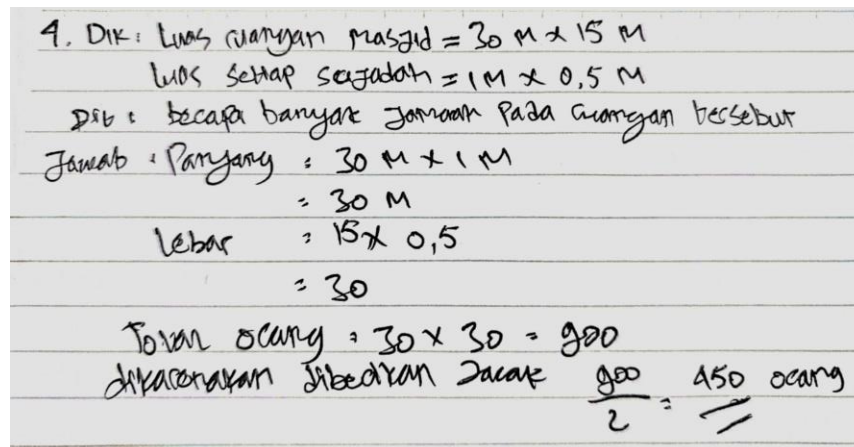 4. Dik : Luas ruangan Masjid = 30 M x 15 M
Luas setiap sajadah = 1 M x 0,5 M
Dit : berapa banyak Jamaah Pada ruangan tersebut
Jawab : Panjang = 30 M x 1 M
= 30 M
Lebar = 15 x 0,5
= 30
Total orang = 30 x 30 = 900
dikarenakan diberikan Jarak 900/2 = 450 orang